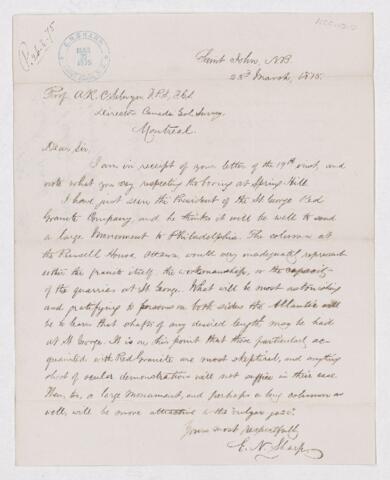 E. N. SHARP
MAR
1875
Saint John, NB
23rd March, 1875.
Prof. A. R. C. Selwyn F.R.S, F.G.S
Director Canada Geol. Survey
Montreal.
Dear Sir.
I am in receipt of your letter of the 19th inst, and
note what you say respecting the boring at Spring Hill
I have just seen the President of the St George Red
Granite Company and he thinks it will be well to send
a large Monument to Philadelphia. The columns at
the Russell House, Ottawa would very inadequately represent
either the granite itself, the workmanship, or the capacity
of the quarries at St George. What will be most astonishing
and gratifying to persons on both sides the Atlantic will
be to learn that shafts of any desired length may be had
at St George. It is on this point that those particularly ac-
quainted with Red Granite are most skeptical, and anything
short of ocular demonstration will not suffice in their case.
Then, too, a large monument, and perhaps a long column as
well, will be more attractive to the vulgar gaze.
Yours most respectfully
E. N. Sharp